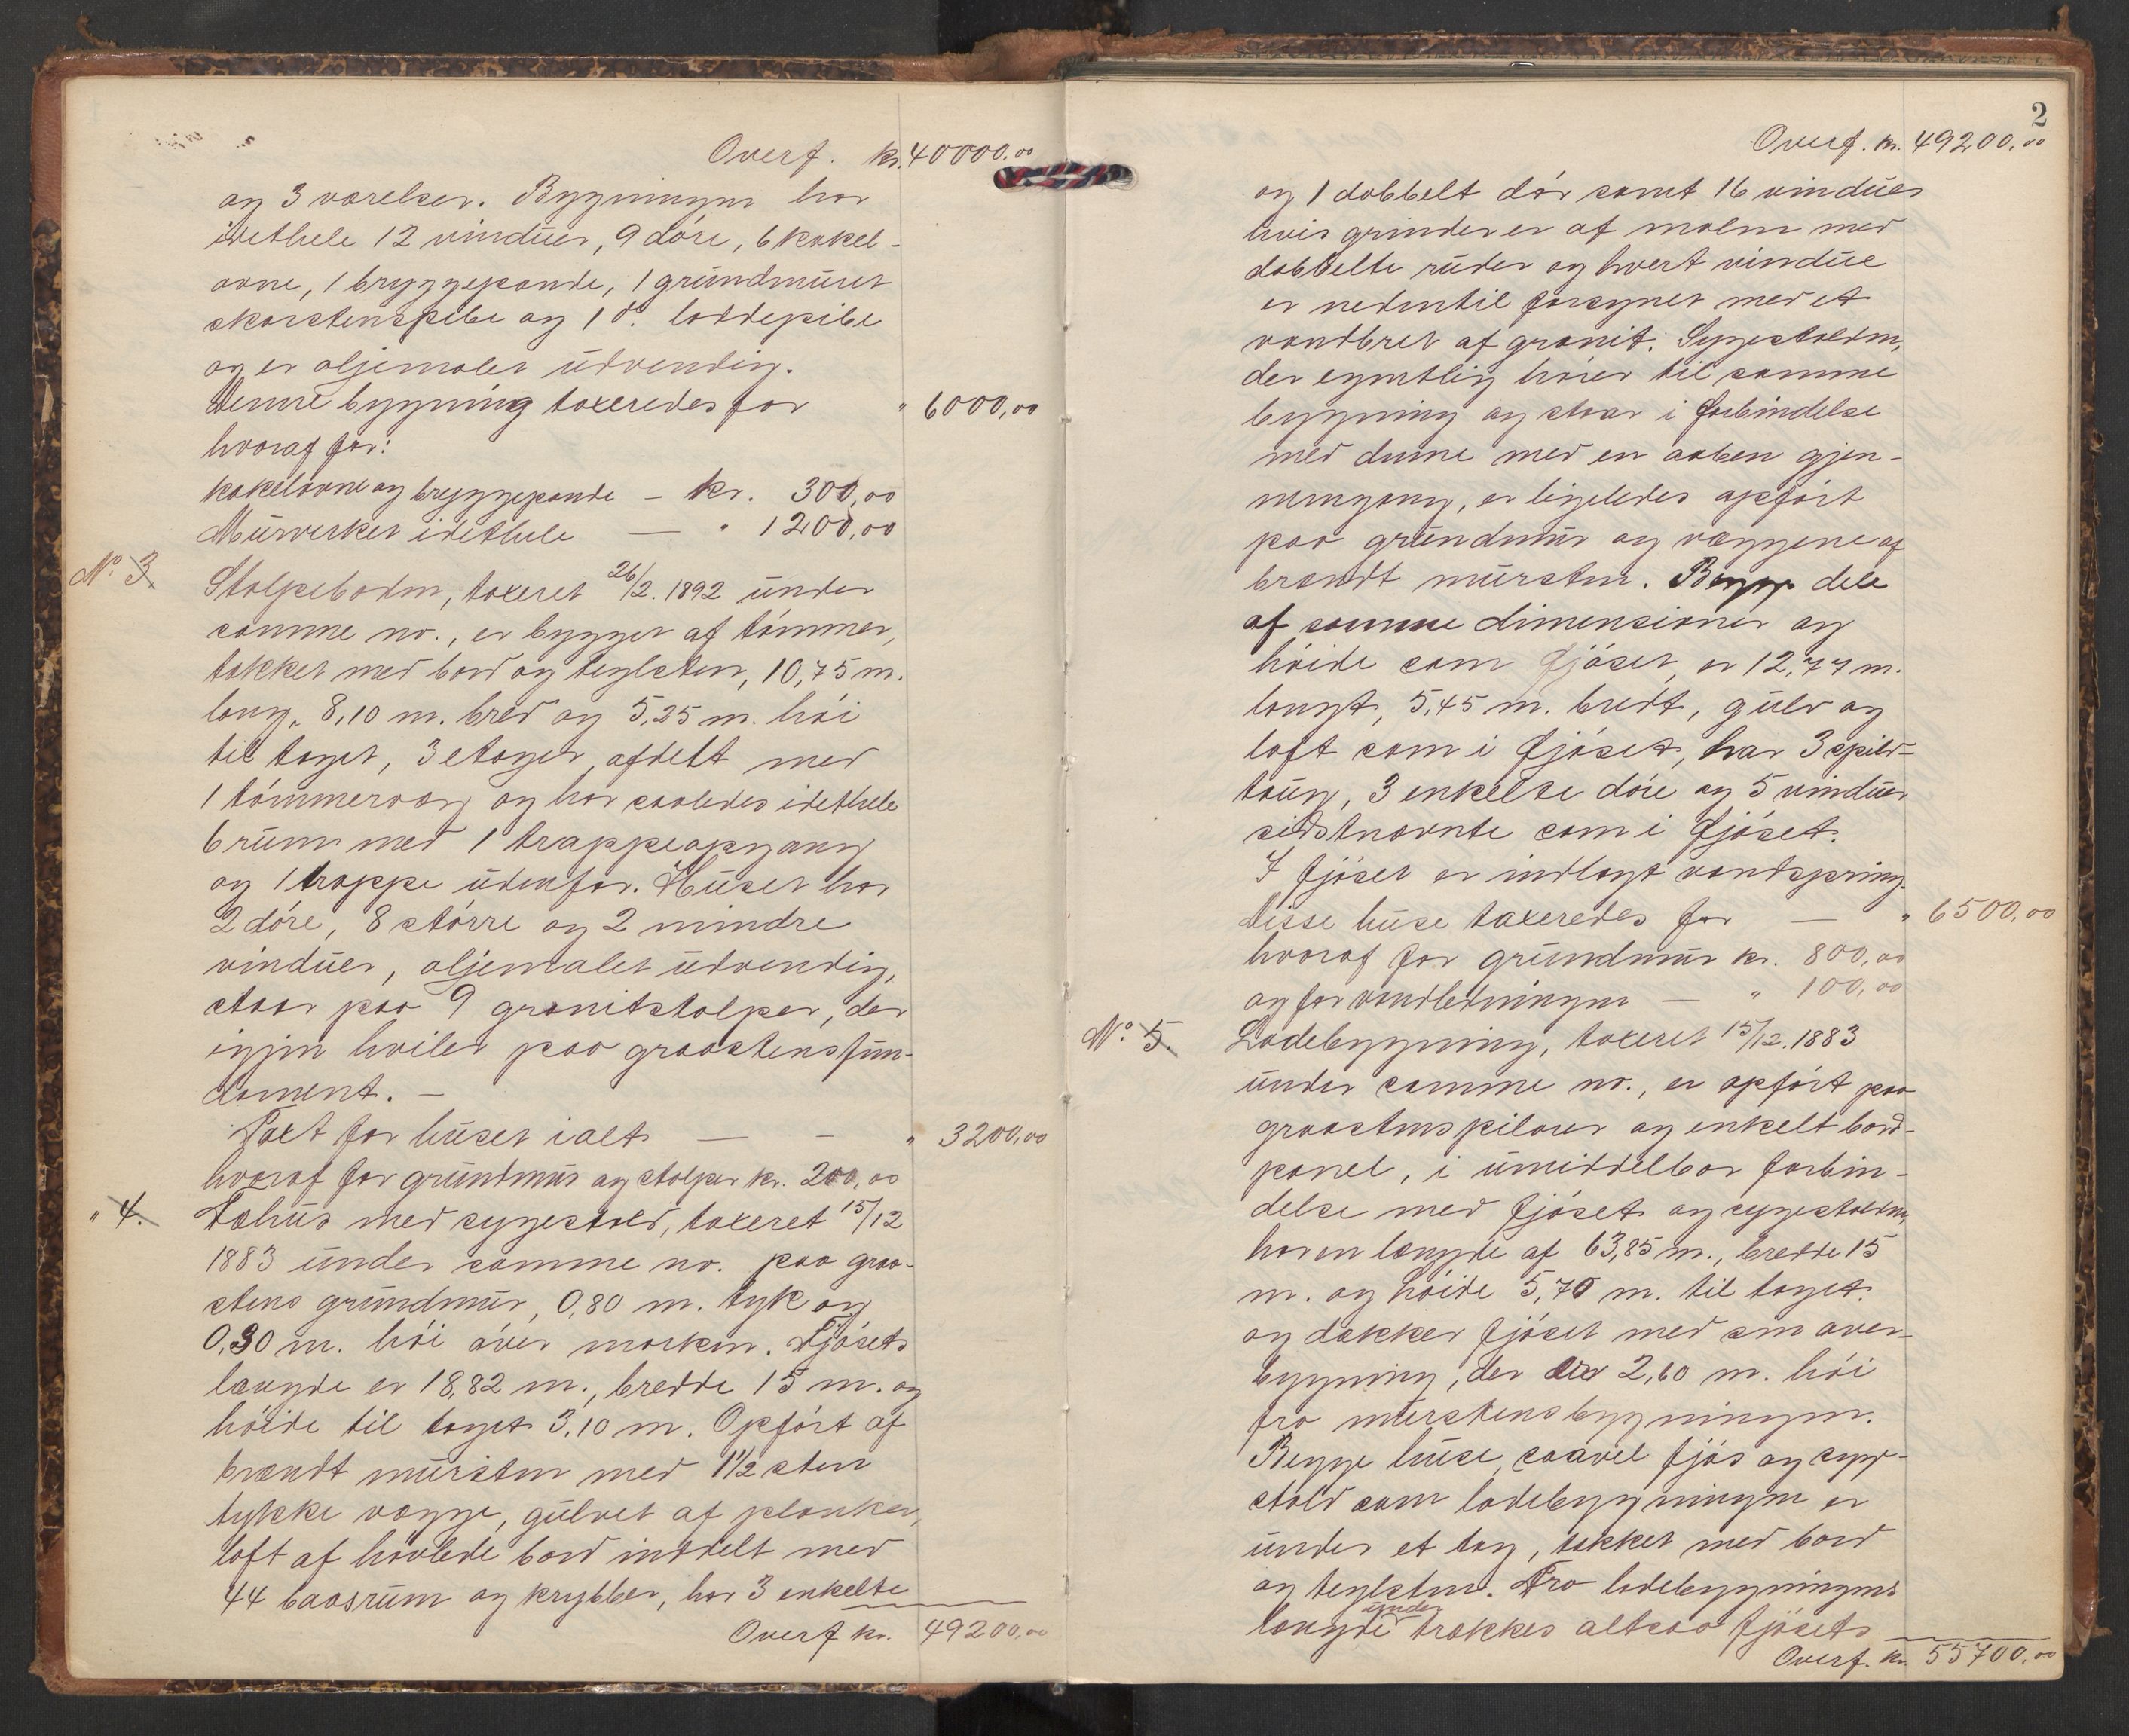 Overf. kr. 40000,00
og 3 værelser. Bygningen har
idethele 12 vinduer, 9 döre, 6 kakel-
ovne, 1 bryggepande, 1 grundmuret
skorstenspibe og 1 do. loddepibe
og er oljemalet udvendig.
Denne bygning taxeredes for " 6000,00
hvoraf for:
kakelovne og bryggepande - kr. 300,00
Murverket idethele — " 1200,00
No. 3 Stolpeboden, taxeret 26/2. 1892 under
samme no., er bygget af tömmer,
tækket med bord og teglsten, 10,75 m.
lang, 8,10 m. bred og 5,25 m. höi
til taget, 3 etager, afdelt med
1 tömmervæg og har saaledes idethele
6 rum med 1 trappeopgang
og 1 trappe udenfor. Huset har
2 döre, 8 större og 2 mindre
vinduer, oljemalet udvendig,
staar paa 9 granitstolper, der
igjen hviler paa graastensfun-
dament. —
Taxt for huset ialt — - " 3200,00
hvoraf for grundmur og stolper kr. 200,00
" 4. Fæhus med sygestald, taxeret 15/12
1883 under samme no. paa graa-
stens grundmur, 0,80 m. tyk og
0,30 m. höi over marken. Fjösets
længde er 18,82 m., bredde 15 m. og
höide til taget 3,10 m. Opfört af
brændt mursten med 1 1/2 sten
tykke vægge, gulvet af planker,
loft af hövlede bord inddelt med
44 baasrum og krybber, har 3 enkelte
Overf kr. 49200,00
2
Overf. kr. 49200,00
og 1 dobbelt dör samt 16 vinduer
hvis grinder er af malm med
dobbelte ruder og hvert vindue
er nedentil forsynet med et
vandbret af granit. Sygestalden,
der egentlig hörer til samme
bygning og staar i forbindelse
med denne med en aaben gjen-
nemgang, er ligeledes opfört
paa grundmur og væggene af
brændt mursten. dele
af samme dimensioner og
höide som fjöset, er 12,77 m.
langt, 5,45 m. bredt, gulv og
loft som i fjöset, har 3 spild-
taug, 3 enkelte döre og 5 vinduer
sidstnævnte som i fjöset.
I fjöset er indlagt vandspring.
Disse huse taxeredes for — " 6500,00
hvoraf for grundmur kr. 800,00
og for vandledningen — " 100,00
No. 5. Ladebygning, taxeret 15/12. 1883
under samme no., er opfört paa
graastenspilarer og enkelt bord-
panel, i umiddelbar forbin-
delse med fjöset og sygestalden,
har en længde af 63,85 m., bredde 15
m. og höide 5,70 m. til taget.
og dækker fjöset med sin over-
bygning, der er 2,60 m. höi
fra murstensbygningen.
Begge huse, saavel fjös og syge-
stald som ladebygningen er
under et tag, tækket med bord
og teglsten. Fra ladebygningens
under
længde trækkes altsaa fjösets
Overf. kr. 55700,00